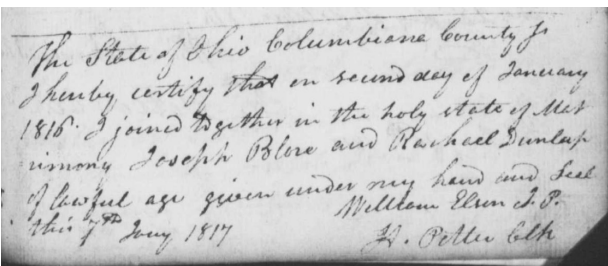 The State of Ohio Columbiana County Ss
I hereby certify that on second day of January
1816. I joined together in the holy state of Mat
rimony Joseph Blore and Rachael Dunlap
of lawful age given under my hand and Seal
this 7th Jany 1817 William Elson J. P.
H. Potter Clk